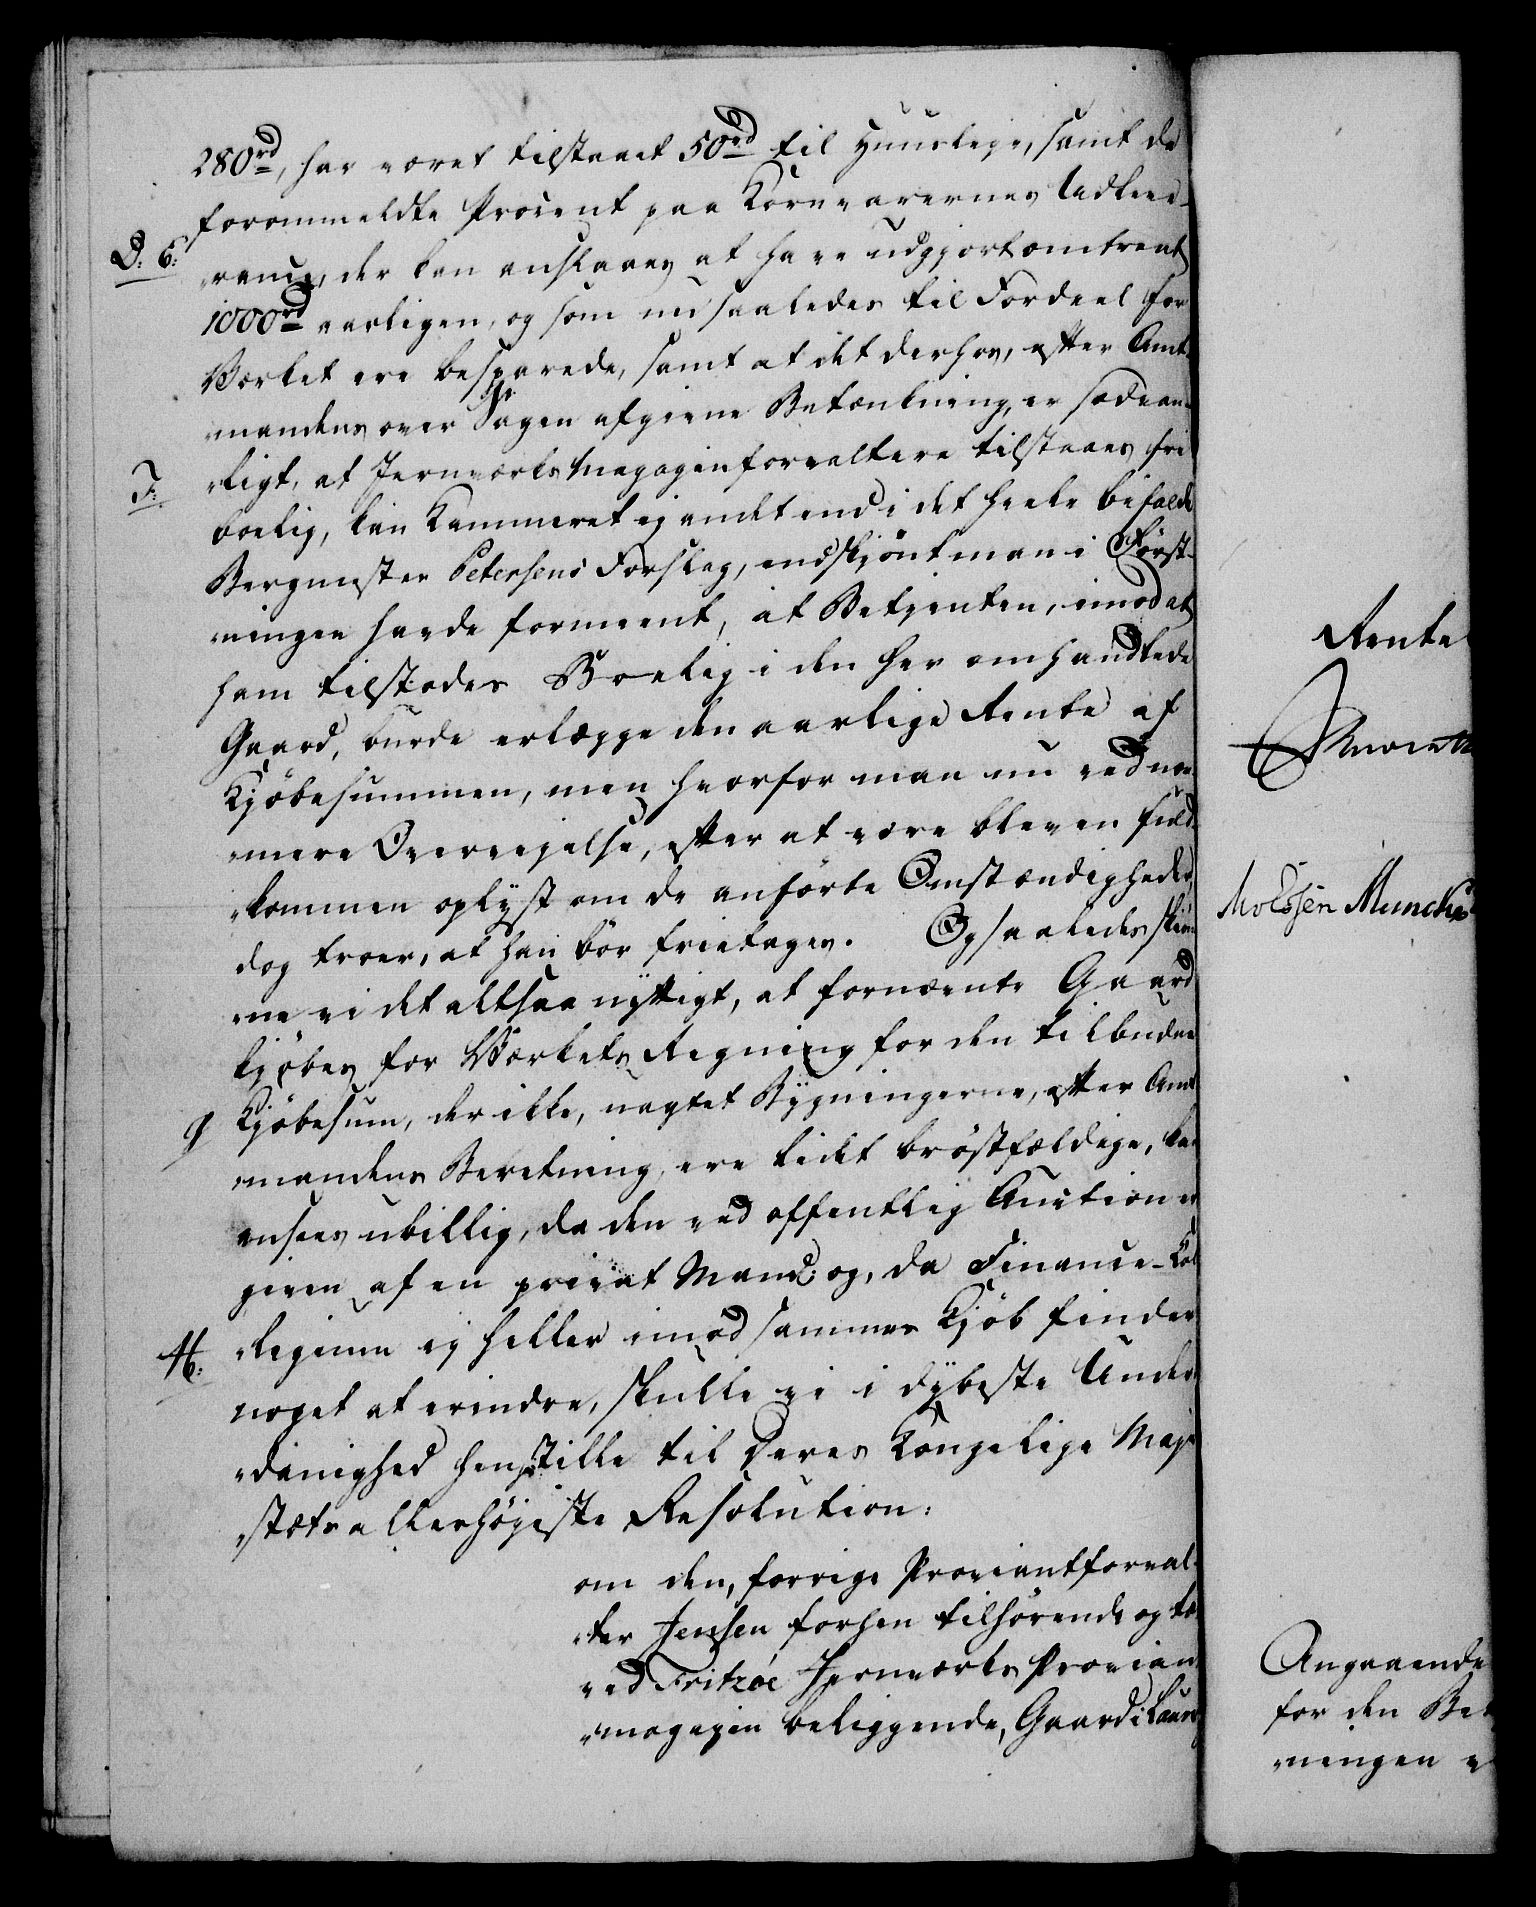 280rd, har været tilstaaet 50rd til Huusleye, samt de
forommeldte Procent paa Kornvarernes Udleve-
D: E: rance, der kan anslaaes at have udgjort omtrent
1000rd aarligen, og som nu saaledes til Fordeel for
Værket ere besparede, samt at det derhos, efter Amt-
mandens over Sagen afgivne Betænkning, er sædvan-
F: ligt, at Jernværks Magazinforvaltere tilstaaes fri
boelig, kan Kammeret ej andet end i det heele bifalde
Bergmester Petersens Forslag, endskjönt man i Först-
ningen havde formeent, at Betjenten, imod at
ham tilstodes Boelig i den her omhandlede
Gaard, burde erlægge den aarlige Rente af
Kjöbesummen, men hvorfor man nu ved nær-
mere Overvejelse, efter at være bleven fuld-
kommen oplyst om de anförte Omstændigheder,
dog troer, at han bör fritages. Ogsaaledes skjön
ne vi det altsaa nyttigt, at fornævnte Gaard
kjöbes for Værkets Regning for den tilbudne
g Kjöbesum, der ikke, uagtet Bygningerne, efter Amt
mandens Beretning, ere lidt bröstfældige, kan
ansees ubillig, da den ved offentlig Auction er
given af en privat Mand; og, da Finance-Col
H: legium ej heller imod sammes Kjöb finder
noget at erindre, skulle vi i dybeste Under
danighed henstille til Deres Kongelige Maje
stæts allerhöjeste Resolution:
om den, forrige Proviantforval-
ter Jensen forhen tilhörende og tæt
ved Fritzöe Jernværks Provian
magazin beliggende, Gaard i Laurv
Rente

Molssen Munchs
Angaaende
for den Bet
ningen